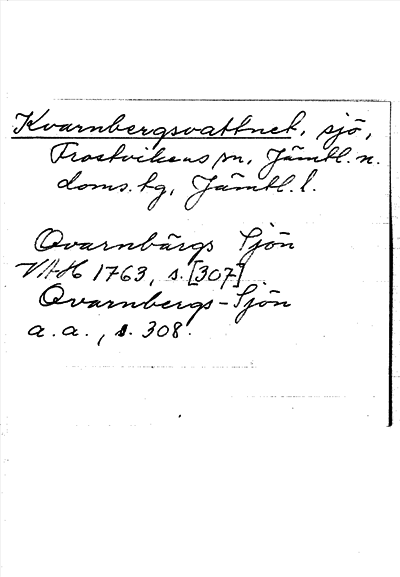 Kvarnbergsvattnet, sjö,
Frostvikens sn, Jämtl. n.
doms. tg, Jämtl. l.
Qvarnbärgs Sjön
VAH 1763, s. [307]
Qvarnbergs-Sjön
a. a., s. 308.